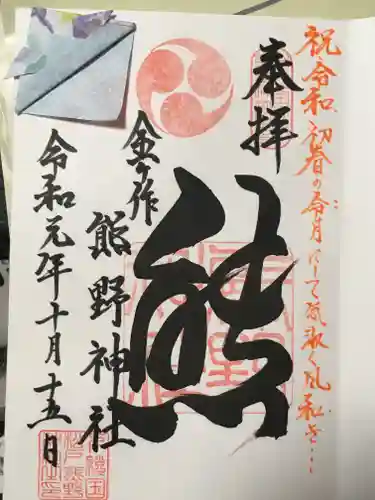 祝令和 初春の令月にして 気淑く風和ぎ…
奉拝
熊
金ヶ作
熊野神社
令和元年十月十五日